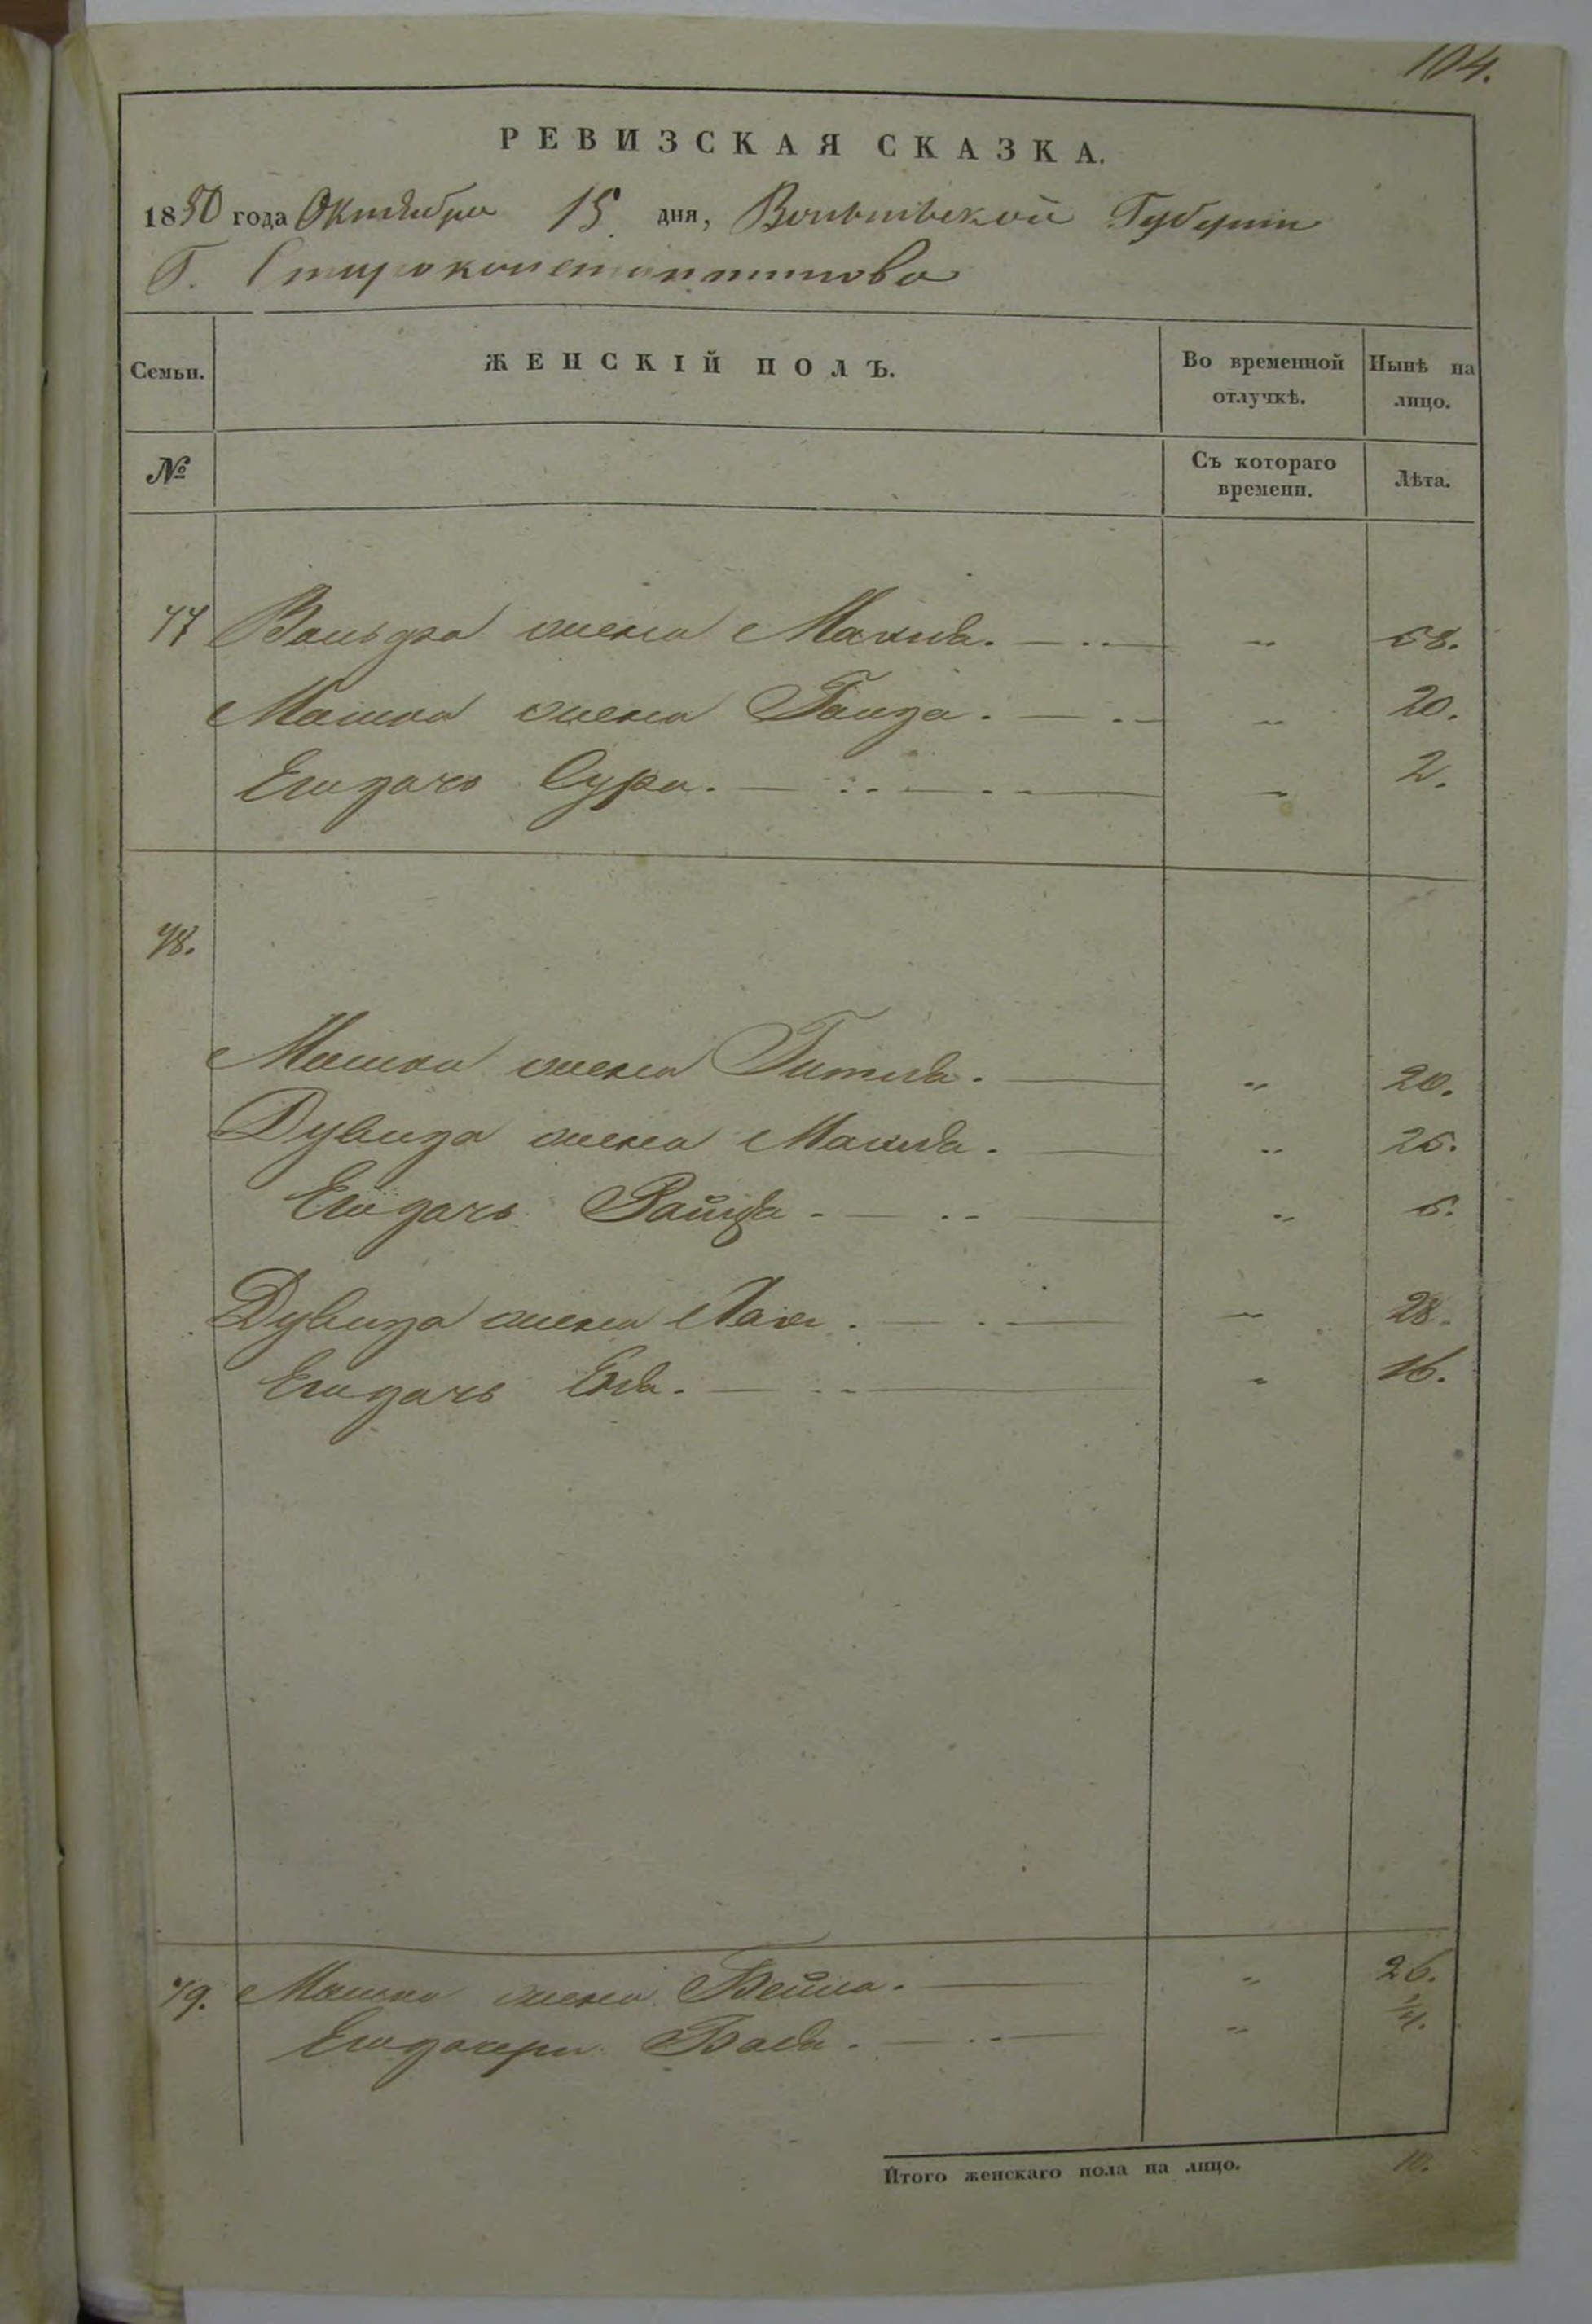 104.
РЕВИЗСКАЯ СКАЗКА.
1850 года Октября 15 дня, Волынской Губернiи
Г. Староконстантинова
Семьи.
ЖЕНСКІЙ ПОЛЪ.
Во временной отлучкѣ.
Нынѣ на лицо.
№
Съ котораго времени.
Лѣта.
77 Вольфа жена Малка. 58.
Мошка жена 20.
Его дочь Сура. 2.
78.
Мошка жена Гитля. 20.
Дувида жена 25.
Его дочь 5.
Дувида жена Лая. 28.
Его дочь 16.
79. Мошка жена Бейла. 26.
Его дочери Бася. 1/4.
Итого женскаго пола на лицо. 10.